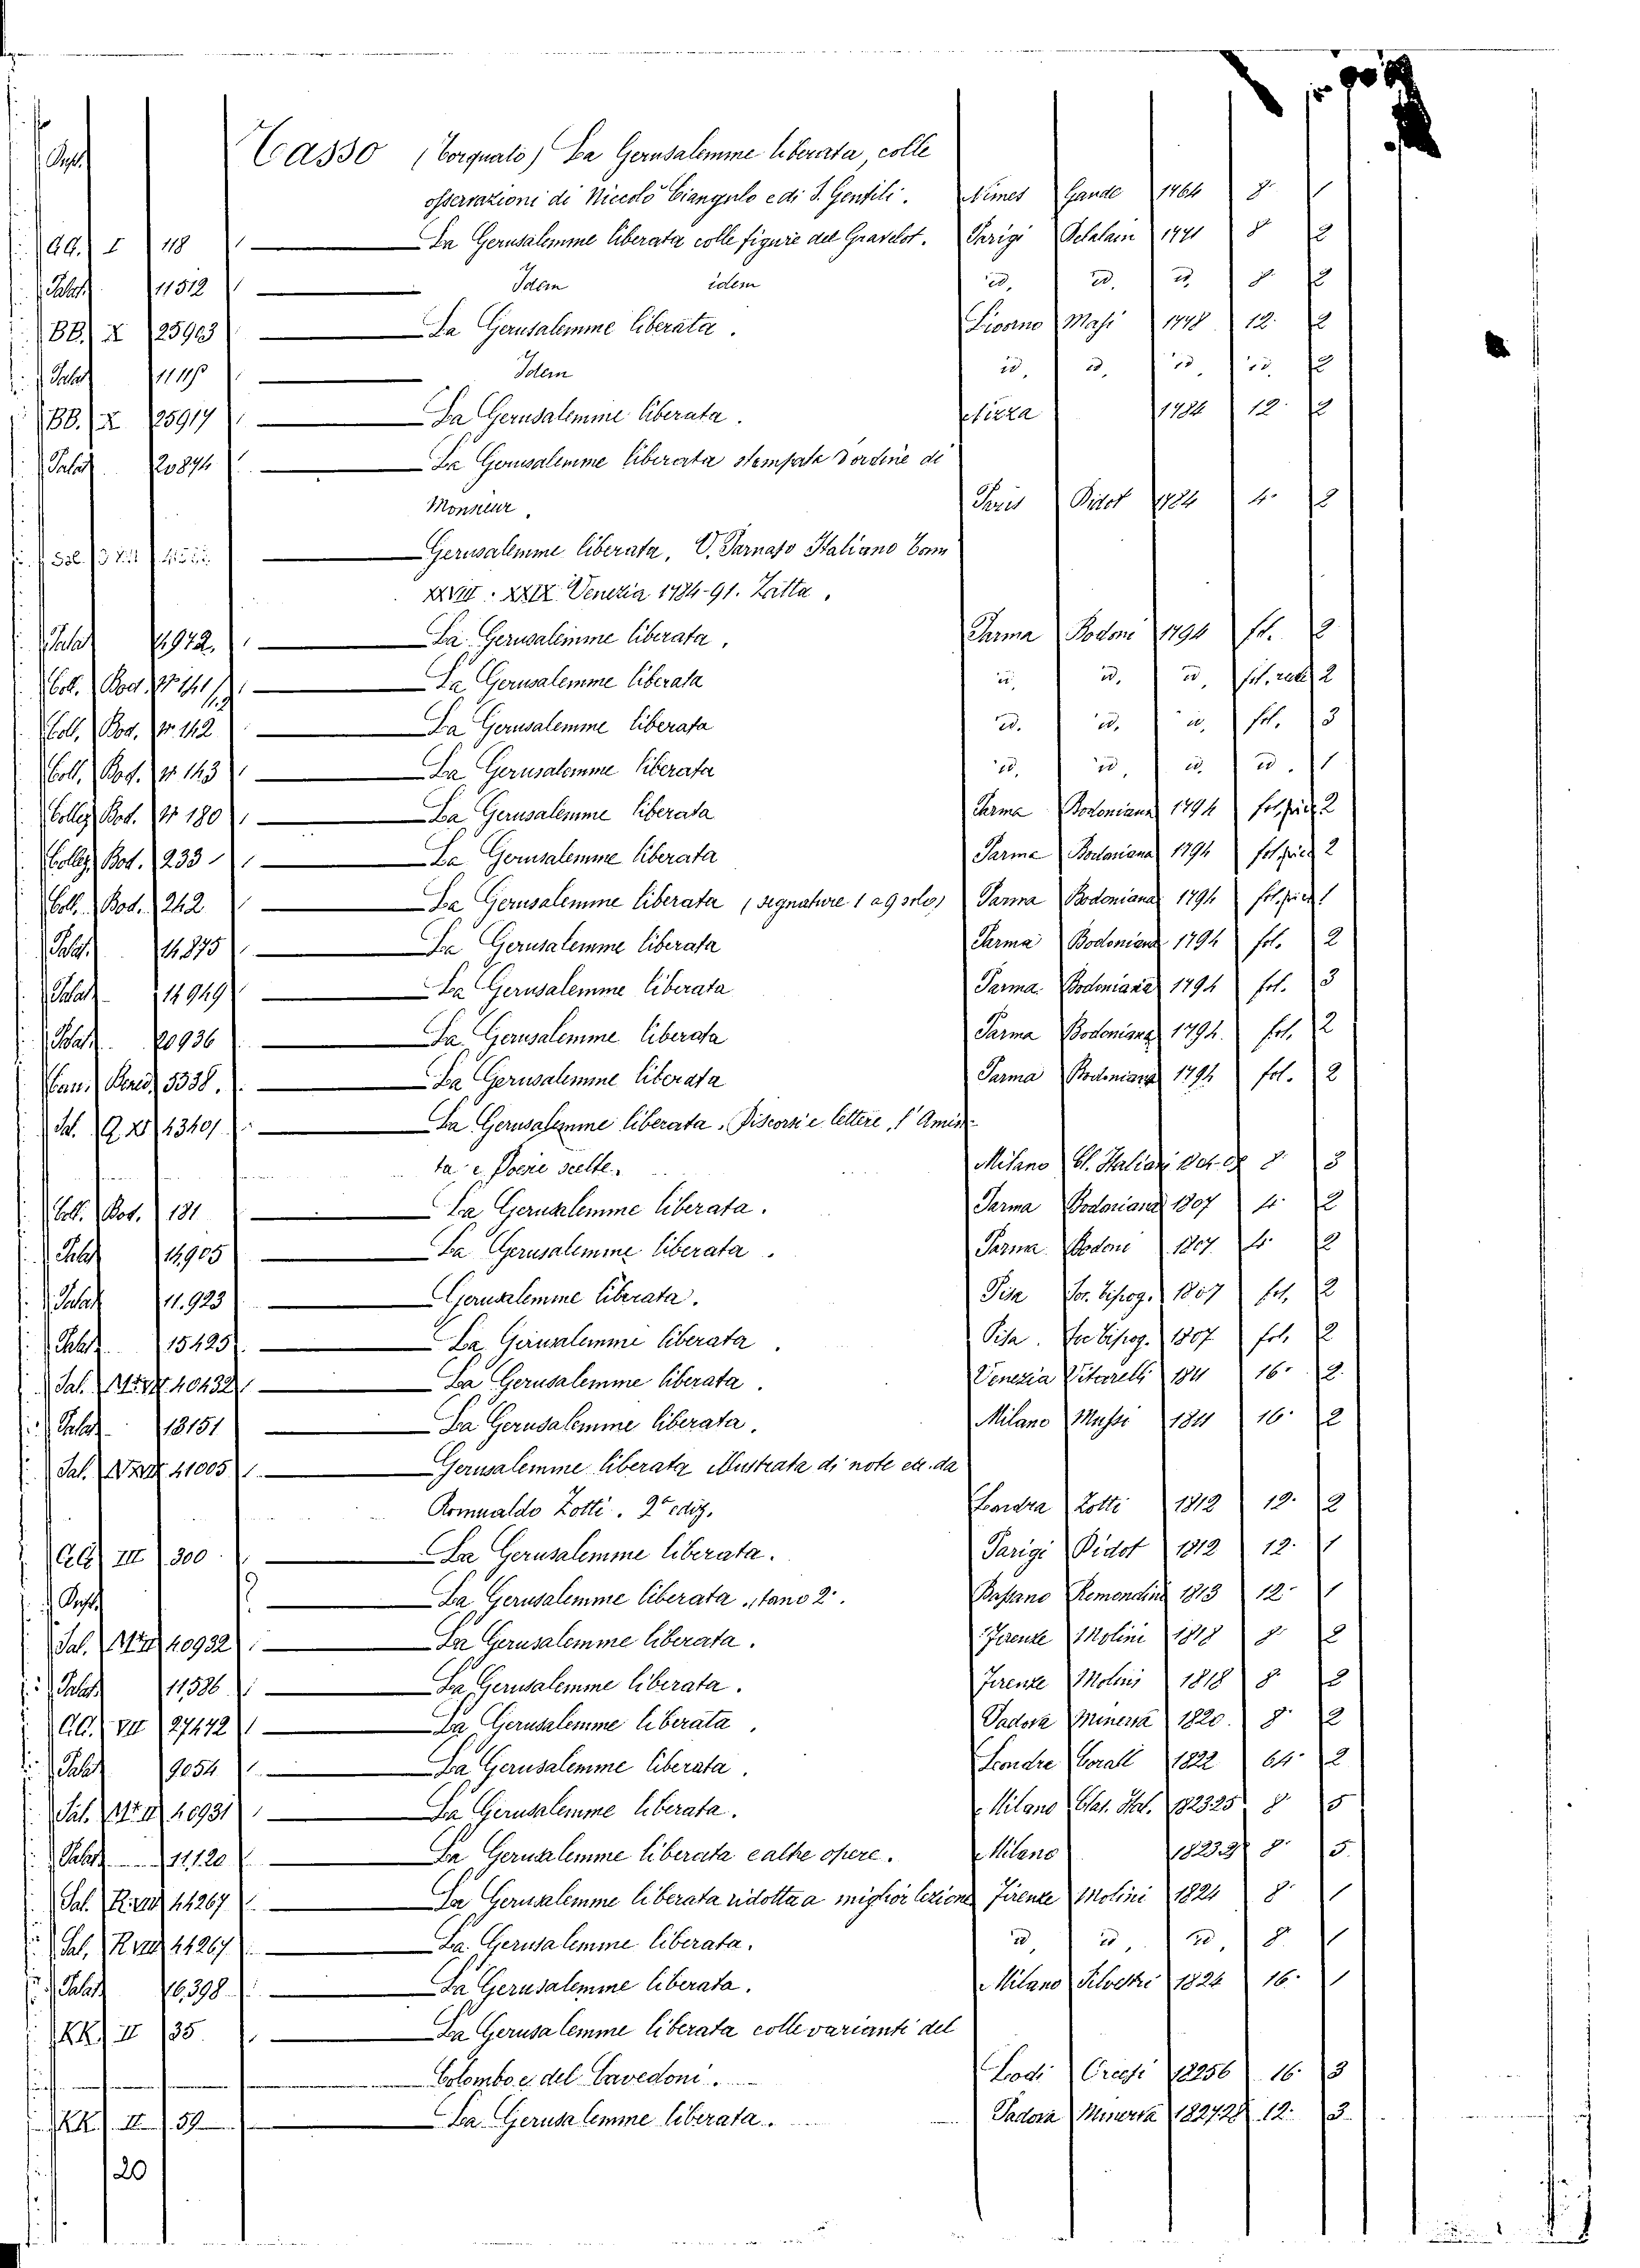 Tasso (Torquato) La Gerusalemme liberata, colle
osservazioni di Niccolò Ciangulo e di S. Gentili. Nimes Gaude 1764 8. 1
AA. I 118 La Gerusalemme liberata colle figure del Gravelot. Parigi Delalain 1771 8 2
Palat. 11512 Idem idem id. id. id. 8. 2
BB. X 25903 La Gerusalemme liberata. Livorno Masi 1778 12. 2
Palat. Idem id. id. id. id. 2
BB. X 25917 La Gerusalemme liberata. Nizza 1784 12. 2
Palat. 20894 La Gerusalemme liberata stampata d'ordine di
Monsieur. Paris Didot 1784 4. 2
Sal. Gerusalemme liberata, V. Parnaso Italiano Tom
XXVIII. XXIX Venezia 1784-91. Zatta.
Palat. La Gerusalemme liberata. Parma Bodoni 1794 fol. 2
Coll. Bod. N° 141 La Gerusalemme liberata id. id. id. fol. 2
Coll. Bod. N. 142 La Gerusalemme liberata id. id. id. fol. 3
Coll. Bod. N 143 La Gerusalemme liberata id. id. id. id. 1
Collez. Bod. N 180 La Gerusalemme liberata Parma Bodoniana 1794 fol. picc. 2
Collez. Bod. 233 La Gerusalemme liberata Parma Bodoniana 1794 fol. picc. 2
Coll. Bod. 242 La Gerusalemme liberata (signature 1 a 9 solo) Parma Bodoniana 1794 fol. picc. 1
Palat. 14875 La Gerusalemme liberata Parma Bodoniana 1794 fol. 2
Palat. 14949 La Gerusalemme liberata Parma Bodoniana 1794 fol. 3
Palat. 20936 La Gerusalemme liberata Parma Bodoniana 1794. fol. 2
Bened. 5338. La Gerusalemme liberata Parma Bodoniana 1794 fol. 2
Sal. 43401 La Gerusalemme liberata, Discorsi e lettere, l'Amin
ta e Poesie scelte. Milano Cl. Italiani 8. 3
Coll. Bod. 181 La Gerusalemme liberata. Parma Bodoniana 1807 4. 2
Palat. 14905 La Gerusalemme liberata. Parma Bodoni 1807 4. 2
Palat. 11.923 Gerusalemme liberata. Pisa Soc. Tipog. 1807 fol. 2
Palat. 15425 La Gerusalemme liberata. Pisa. Soc Tipog. 1807 fol. 2
Sal. 40432 La Gerusalemme liberata. Venezia Vitarelli 1811 16. 2.
Palat. 18151 La Gerusalemme liberata. Milano Mussi 1811 16. 2
Sal. 41005 Gerusalemme liberata illustrata di note ec. da
Romualdo Zotti. 2ª ediz. Londra Zotti 1812 12. 2
III 300 La Gerusalemme liberata. Parigi Didot 1812 12. 1
? La Gerusalemme liberata, tomo 2°. Bassano Remondini 1813 12. 1
Sal. 40932 La Gerusalemme liberata. Firenze Molini 1818 8. 2
Palat. 11586 La Gerusalemme liberata. Firenze Molini 1818 8. 2
VII 27472 La Gerusalemme liberata. Padova Minerva 1820. 8. 2
Palat. 9054 La Gerusalemme liberata. Londra Corall 1822 64. 2
Sal. 40931 La Gerusalemme liberata. Milano Clas. Ital. 1823.25 8 5
Palat. 11120 La Gerusalemme liberata e altre opere. Milano 8. 5.
Sal. 44267 La Gerusalemme liberata ridotta a miglior lezione Firenze Molini 1824 8. 1
Sal. 44267 La Gerusalemme liberata. id. id. id. 8. 1
Palat. 16,398 La Gerusalemme liberata. Milano Silvestri 1824 16. 1
KK II 35 La Gerusalemme liberata colle varianti del
Colombo e del Cavedoni. Lodi Orcesi 1825 6 16. 3
KK. II 59 La Gerusalemme liberata. Padova Minerva 1827 28 12. 3.
20